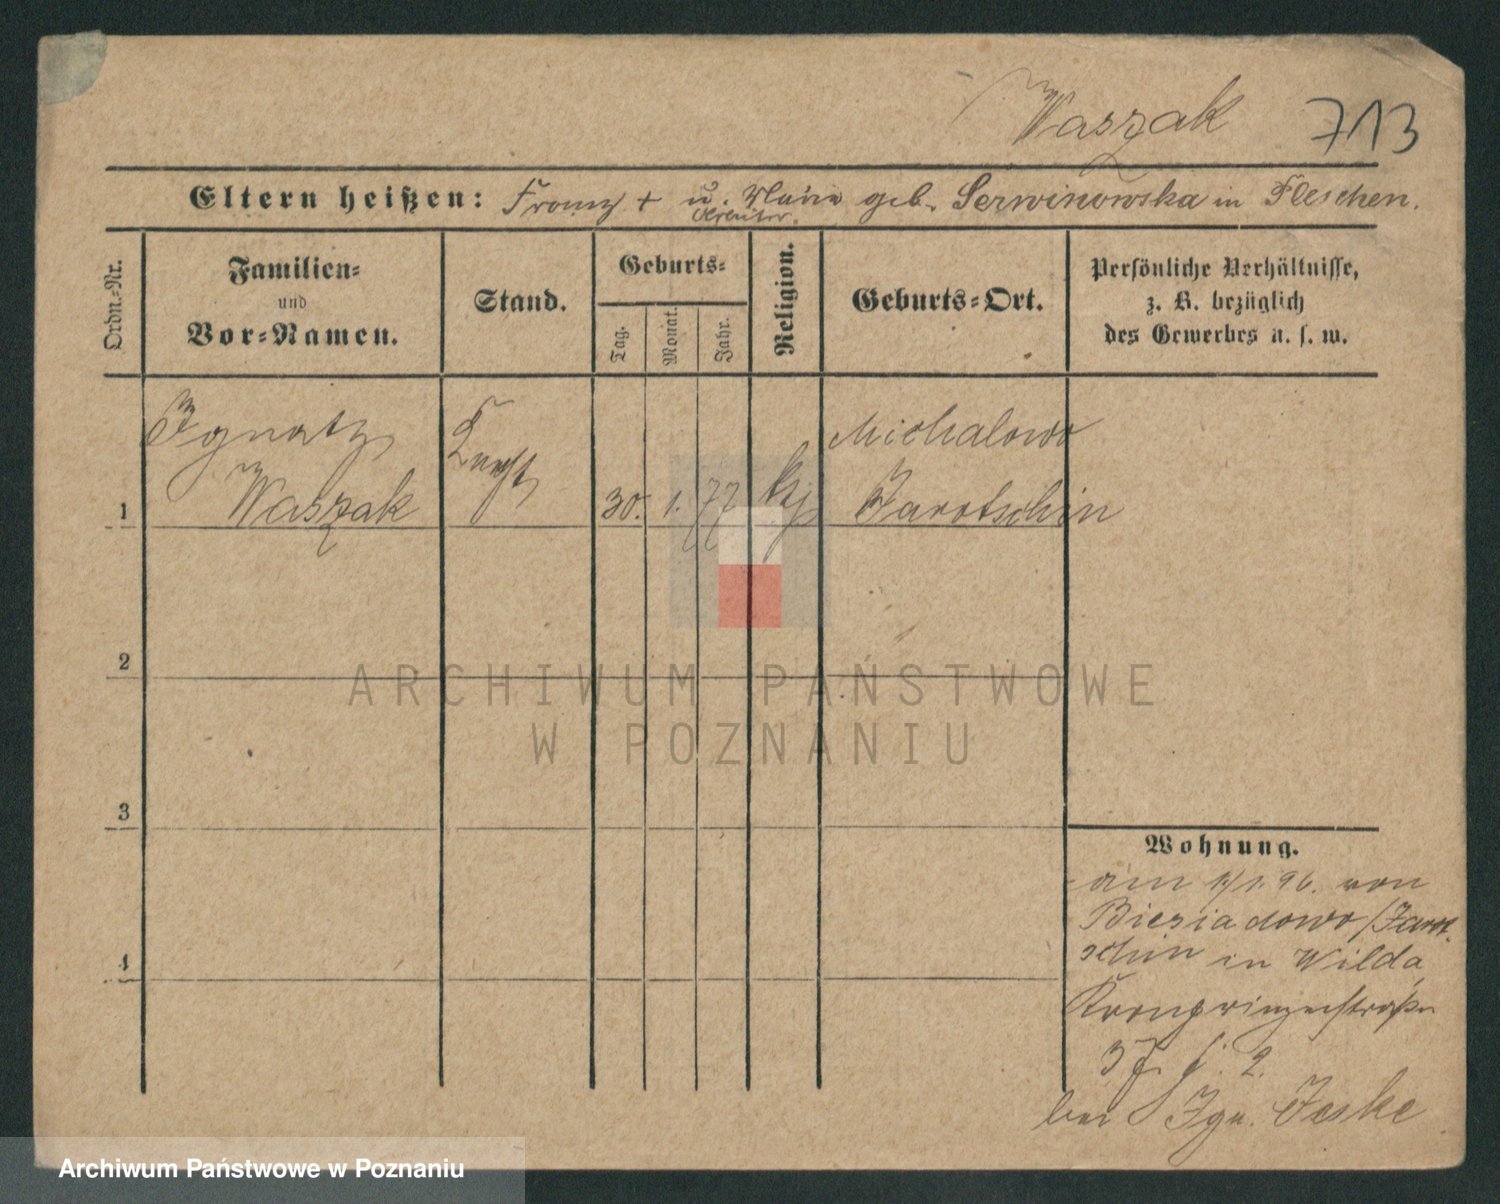 Waszak 713
Eltern heißen: Franz + u. Maria geb. Serwinowska in Pleschen.
Ordn.-Nr.
Familien-
und
Vor-Namen.
Stand.
Geburts-
Tag.
Monat.
Jahr.
Religion.
Geburts-Ort.
Persönliche Verhältnisse,
z. B. bezüglich
des Gewerbes u. s. w.
1
Ignatz
Waszak
30. 1. 77
Michalowo
Jarotschin
2
3
4
Wohnung.
am 1/1. 96. von
Biesiadowo/Jarot
schin in Wilda
Kronprinzenstraße
37. 2.
bei Ign. Jeske
ARCHIWUM PAŃSTWOWE
W POZNANIU
Archiwum Państwowe w Poznaniu